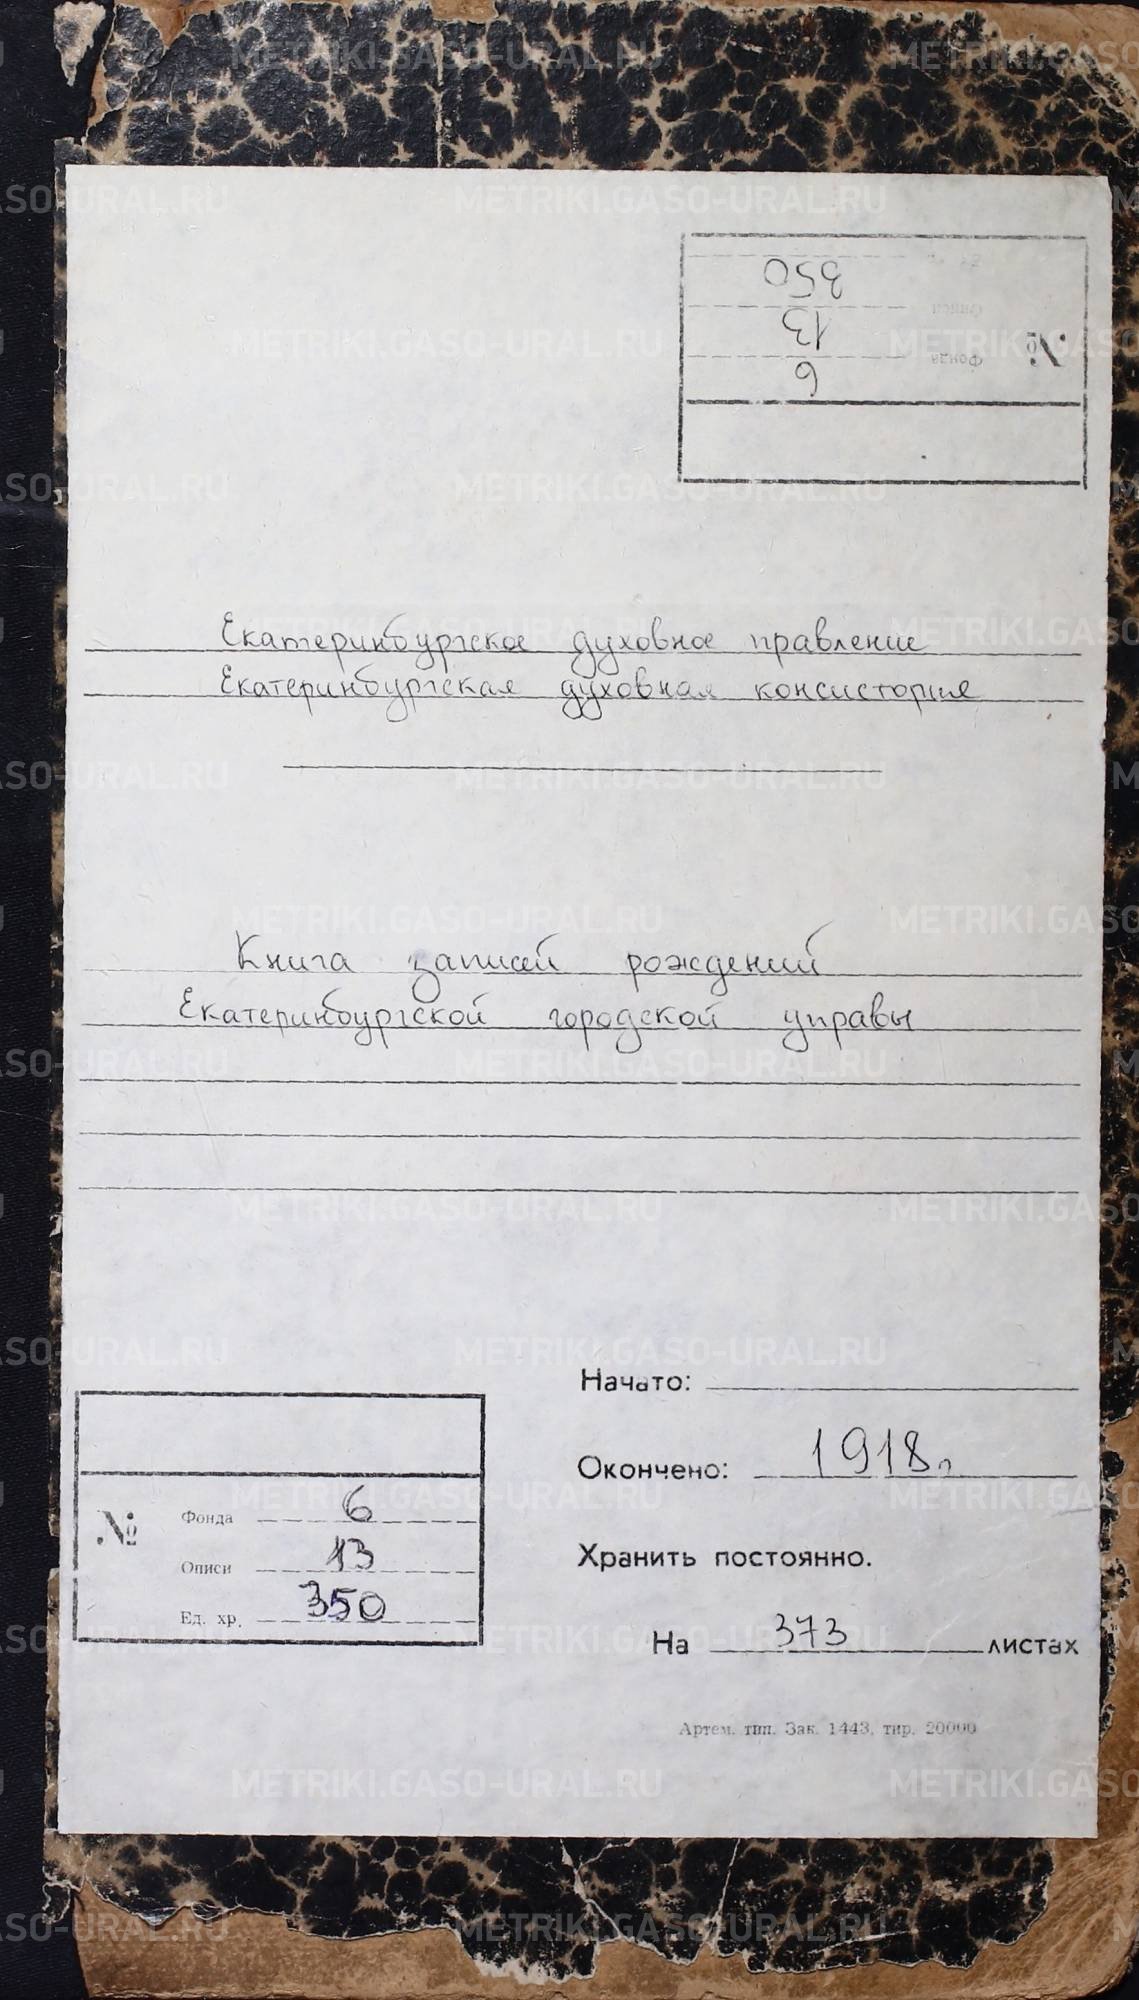 №
Фонда 6
Описи 13
350
Екатеринбургское духовное правление
Екатеринбургская духовная консистория
Книга записей рождений
Екатеринбургской городской управы
Начато:
Окончено: 1918г
Хранить постоянно.
На 373 листах
№
Фонда 6
Описи 13
Ед. хр. 350
Артем. тип. Зак. 1443, тир. 20000
METRIKI.GASO-URAL.RU